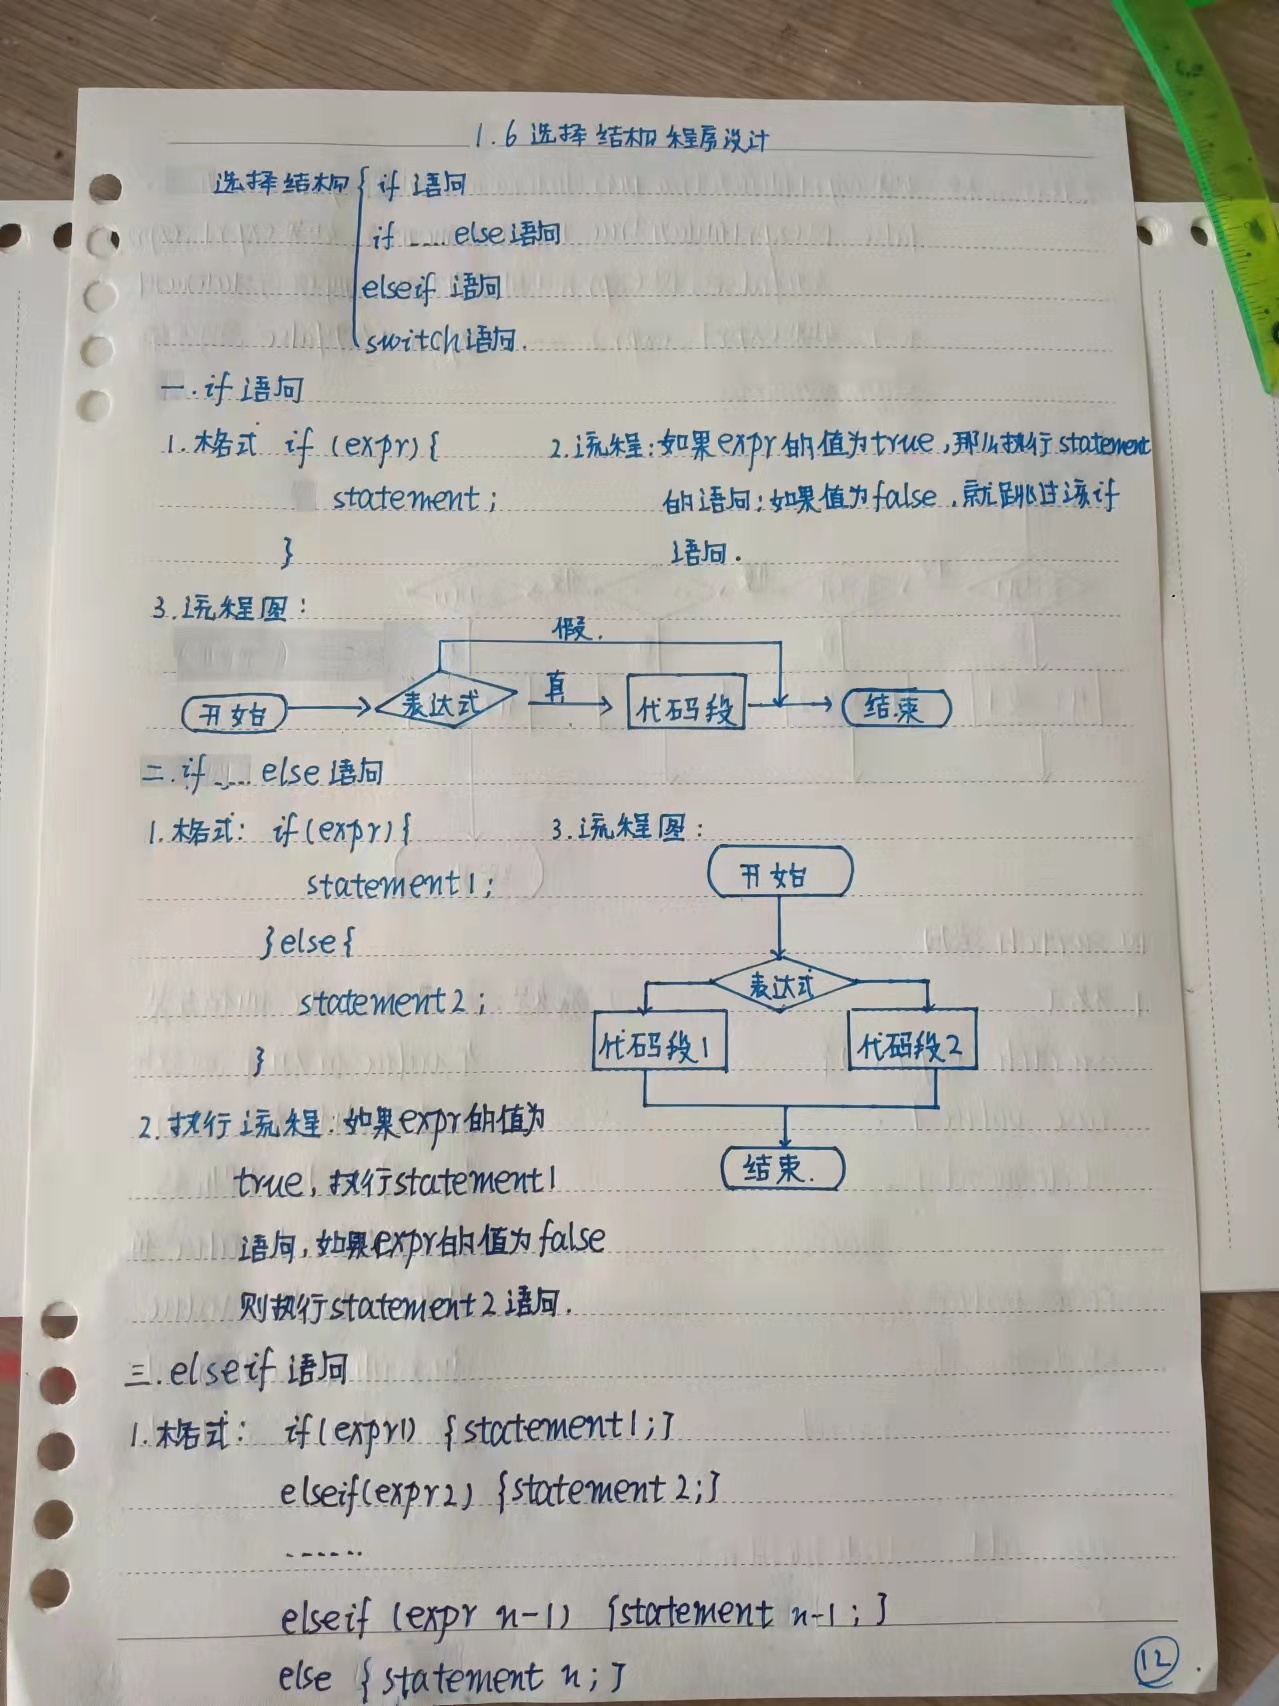 1.6 选择结构程序设计
选择结构{ if 语句
if ..... else语句
elseif 语句
switch语句.
一.if 语句
1.格式 if (expr){
statement;
}
2.流程:如果expr的值为true,那么执行statement
的语句;如果值为false,就跳过该if
语句.
3.流程图:
假.
开始
表达式
真
代码段
结束
二.if ..... else 语句
1.格式: if(expr){
statement1;
}else{
statement2;
}
3.流程图:
开始
表达式
代码段1
代码段2
结束.
2.执行流程:如果expr的值为
true,执行statement1
语句,如果expr的值为false
则执行statement2语句.
三.elseif 语句
1.格式: if(expr1) {statement1;}
elseif(expr2) {statement2;}
......
elseif (expr n-1) {statement n-1;}
else {statement n;}
12